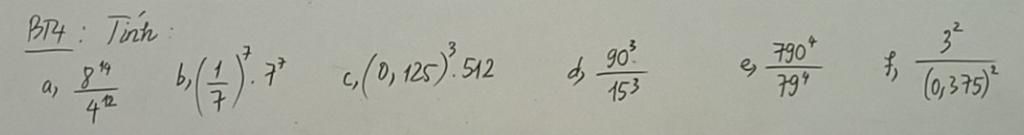 BT4: Tính:
a, 8^14/4^12 b, (1/7)^7 . 7^7 c, (0,125)^3 . 512 d, 90^3/15^3 e, 790^4/79^4 f, 3^2/(0,375)^2